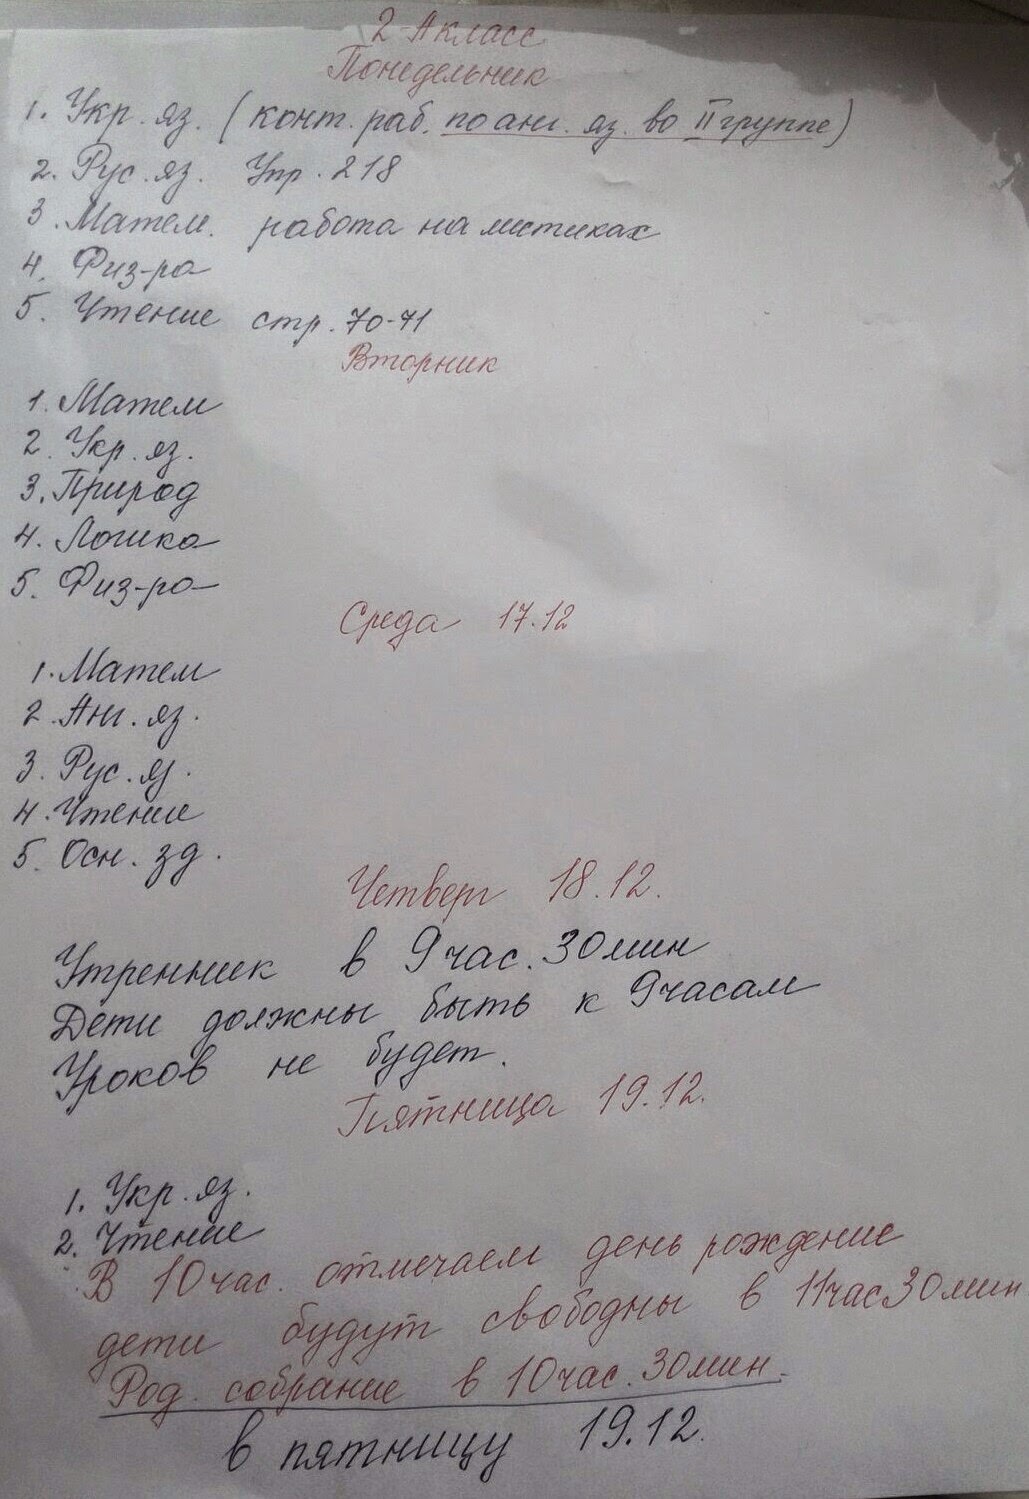 2-А класс
Понедельник
1. Укр. яз. (конт. раб. по анг. яз. во II группе)
2. Рус. яз. Упр. 218
3. Матем. работа на листиках
4. Физ-ра
5. Чтение стр. 70-71
Вторник
1. Матем
2. Укр. яз.
3. Природ
4. Логика
5. Физ-ра
Среда 17.12
1. Матем
2. Анг. яз.
3. Рус. яз.
4. Чтение
5. Осн. зд.
Четверг 18.12.
Утренник в 9 час. 30 мин
Дети должны быть к 9 часам
Уроков не будет.
Пятница 19.12.
1. Укр. яз.
2. Чтение
В 10 час. отмечаем день рождение
дети будут свободны в 11 час 30 мин
Род. собрание в 10 час. 30 мин.
в пятницу 19.12.